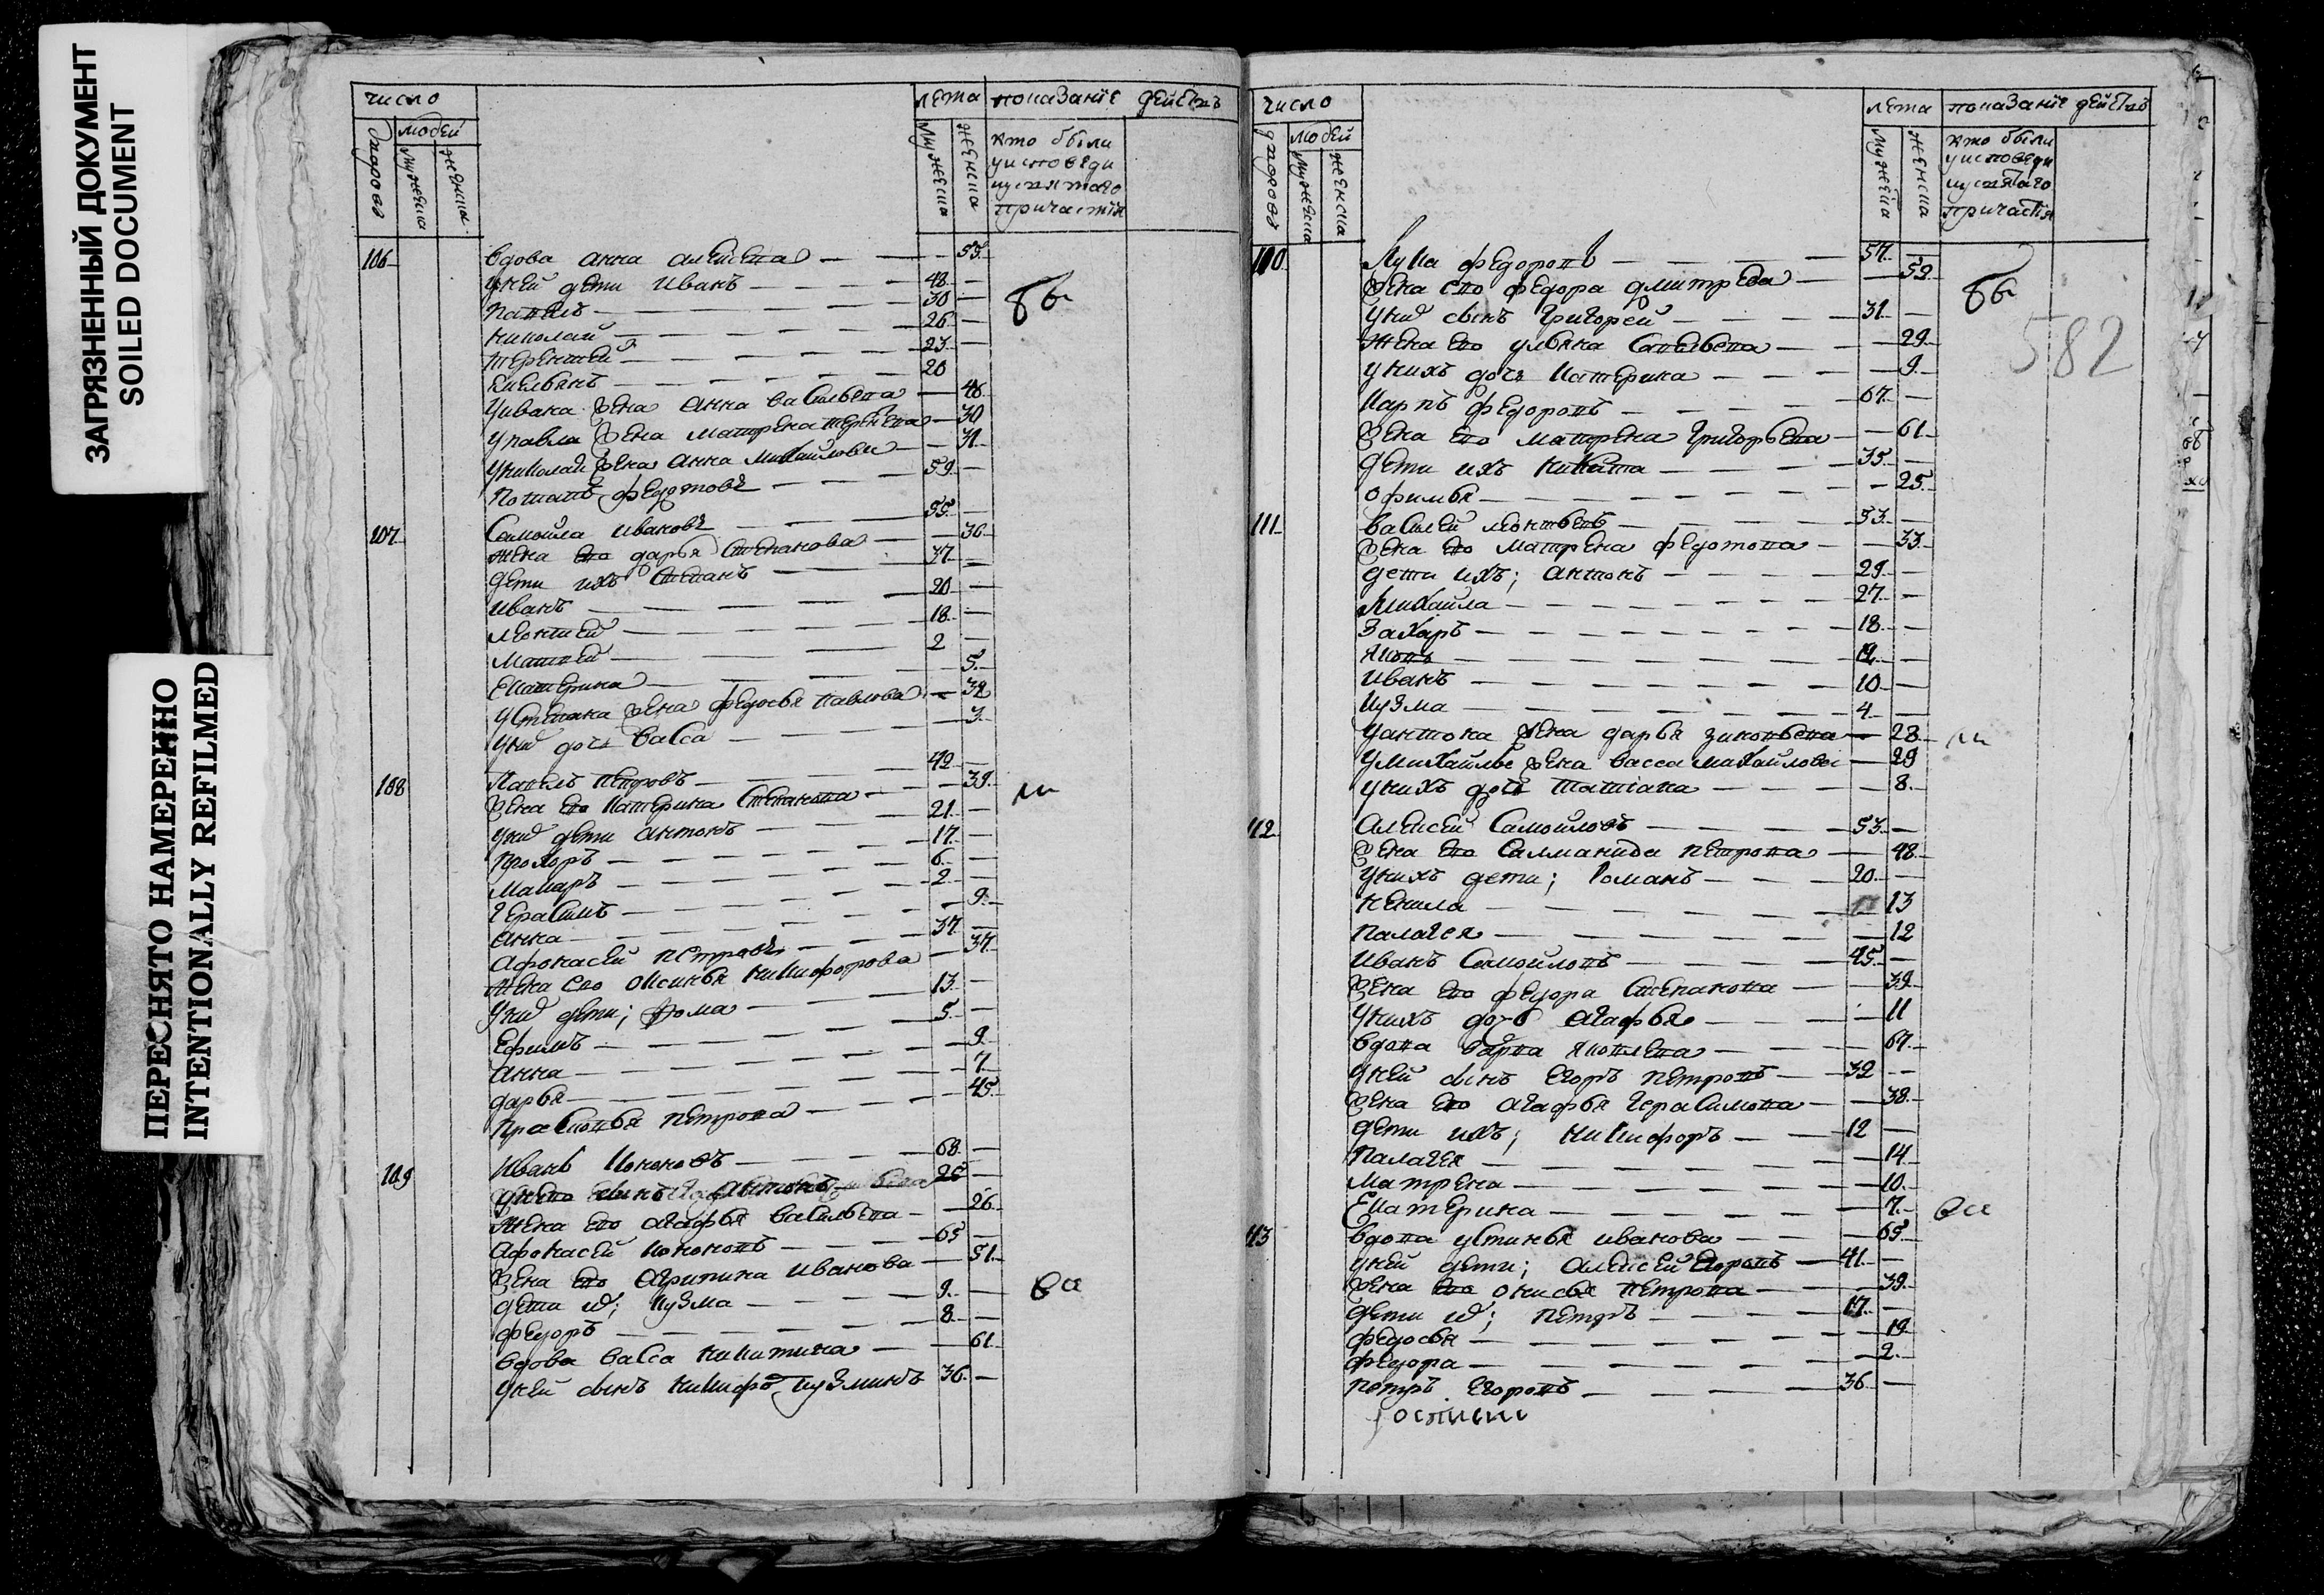 ЗАГРЯЗНЕННЫЙ ДОКУМЕНТ
SOILED DOCUMENT
ПЕРЕСНЯТО НАМЕРЕННО
INTENTIONALLY REFILMED
число лета показание действъ
дворовъ людей мужеска женска
мужеска женска кто были
у исповеди
и у святаго
причастія
106 вдова анна алексеева 55
у ней дети иванъ 48
павелъ 30
николай 26
терентей 23
емельянъ 20
у ивана жена анна васильева 46
у павла жена матрена терентева 30
у николая жена анна михайловы 31
потапъ федотовъ 59
107 самойла ивановъ 55
жена ево дарья степанова 36
дети ихъ степанъ 37
иванъ 20
леонтей 18
матвей 2
екатерина 5
у степана жена федосья павлова 32
у ней дочь васса 3
108 павелъ петровъ 42
жена ево катерина степанова 39
у них дети антонъ 21
прохоръ 17
макаръ 6
герасимъ 2
анна 9
афонасей петровъ 37
жена ево оксинья никифорова 37
у них дети; фома 13
ефимъ 5
анна 9
дарья 7
прасковья петрова 45
109 иванъ кононовъ 68
у нево сынъ антонъ 25
жена ево агафья васильева 26
афонасей кононовъ 65
жена ево агрипина иванова 51
дети их; кузма 9
федоръ 8
вдова васса никитина 61
у ней сынъ никифоръ кузминъ 36
число лета показание действъ
дворовъ людей мужеска женска
мужеска женска кто были
у исповеди
и у святаго
причастія
582
110 лука федоровъ 57
жена ево федора дмитрева 59
у них сынъ григорей 31
жена ево ульяна савельева 29
у нихъ дочь катерина 9
карпъ федоровъ 67
жена ево матрена григорьева 61
дети ихъ никита 35
офимья 25
111 василей леонтьевъ 53
жена ево матрена федотова 53
дети ихъ; антонъ 29
михайла 27
захаръ 18
яковъ 12
иванъ 10
кузма 4
у антона жена дарья зиновьева 28
у михайлы жена васса михайлова 29
у нихъ дочь татіана 8
112 алексей самойловъ 53
жена ево саламанида петрова 48
у нихъ дети; романъ 20
ненила 13
палагея 12
иванъ самойловъ 45
жена ево федора степанова 39
у нихъ дочь агафья 11
вдова варва яковлева 67
у ней сынъ егоръ петровъ 32
жена ево агафья герасимова 38
дети ихъ; никифоръ 12
палагея 14
матрена 10
екатерина 7
113 вдова устинья иванова 65
у ней дети; алексей егоровъ 41
жена ево онисья петрова 39
дети их; петръ 17
федосья 19
федора 2
петръ егоровъ 36